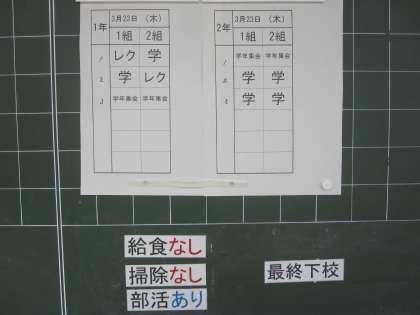 1年 3月23日 (木)
1組 2組
1 レク 学
2 学 レク
3 学年集会 学年集会
2年 3月23日 (木)
1組 2組
1 学年集会 学年集会
2 学 学
3 学 学
給食なし
掃除なし
部活あり
最終下校